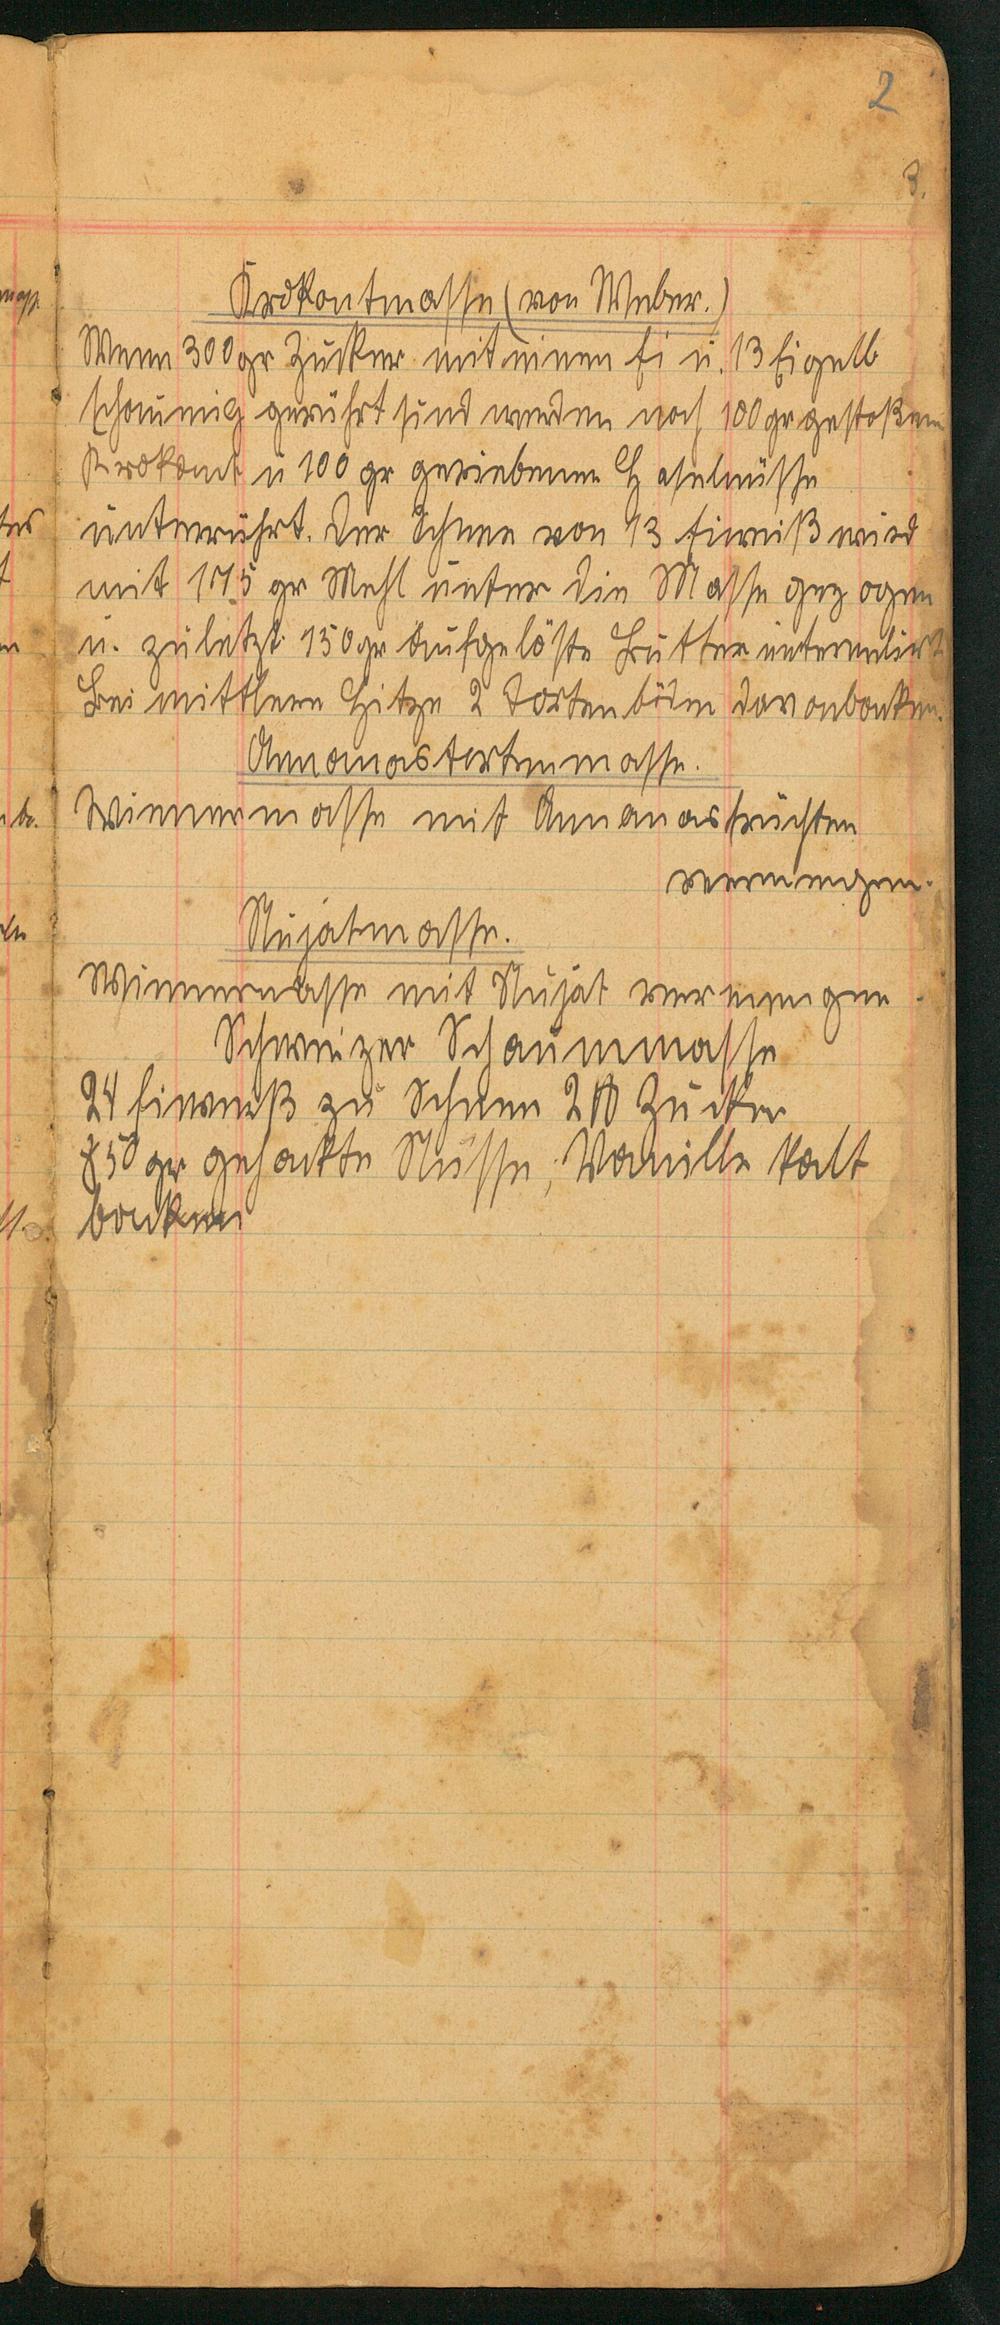 2
3.
Krokantmasse (von Weber.)
Wenn 300 gr Zucker mit einem Ei u. 13 Eigelb
schaumig gerührt sind werden noch 100 gr gestoßene
Krokant u 100 gr geriebene Haselnüsse
unterrührt. Der Schnee von 13 Eiweiß wird
mit 175 gr Mehl unter die Masse gezogen
u. zuletzt 150 gr aufgelöste Butter
Bei mittlere Hitze 2 Tortenböden davon backen.
Annanastortenmasse.
Wienermasse mit Annanasfrüchten
vermengen.
Nujatmasse.
Wienermasse mit Nujat vermengen
Schweizer Schaummasse
24 Eiweiß zu Schnee 2 ℔ Zucker
gr gehackte Nüsse, Vanille kalt
backen